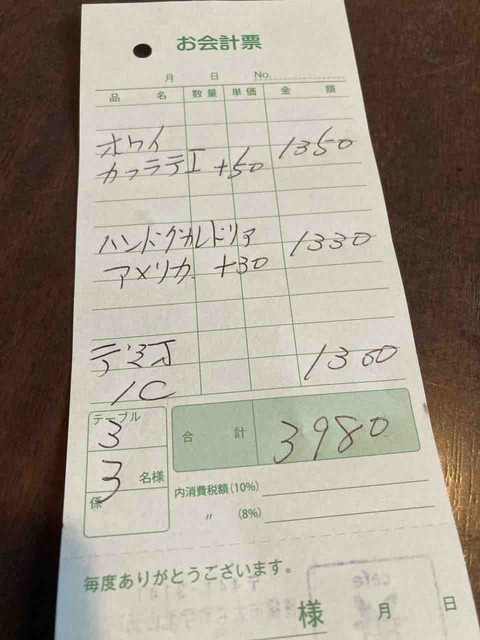 お会計票
月 日 No.
品 名 数量 単価 金 額
カフラテI +50 1350
ハンドグカレドリア 1330
アメリカ +30
1300
1C
テーブル
3
3 名様
係
合 計 3980
内消費税額(10%)
〃 (8%)
毎度ありがとうございます。
様 月 日